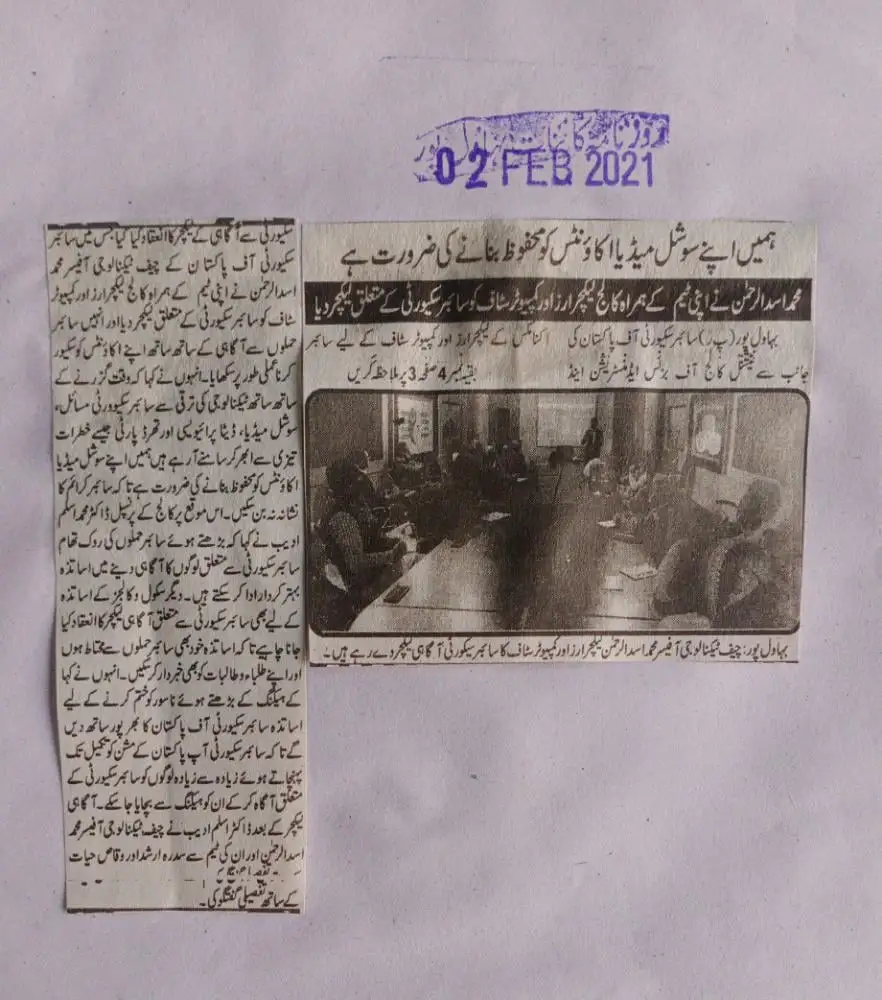 روزنامہ کائنات بہاولپور
02 FEB 2021
ہمیں اپنے سوشل میڈیا اکاؤنٹس کو محفوظ بنانے کی ضرورت ہے
محمد اسد الرحمٰن نے اپنی ٹیم کے ہمراہ کالج لیکچرارز اور کمپیوٹر سٹاف کو سائبر سکیورٹی کے متعلق لیکچر دیا
بہاول پور (پ ر) سائبر سکیورٹی آف پاکستان کی
جانب سے نیشنل کالج آف بزنس ایڈمنسٹریشن اینڈ
اکنامکس کے لیکچرارز اور کمپیوٹر سٹاف کے لیے سائبر
بقیہ نمبر 4 صفحہ 3 پر ملاحظہ کریں
بہاول پور: چیف ٹیکنالوجی آفیسر محمد اسد الرحمٰن لیکچرارز اور کمپیوٹر سٹاف کا سائبر سیکورٹی آگاہی لیکچر دے رہے ہیں۔
سکیورٹی سے آگاہی کے لیکچر کا انعقاد کیا گیا جس میں سائبر
سکیورٹی آف پاکستان کے چیف ٹیکنالوجی آفیسر محمد
اسد الرحمٰن نے اپنی ٹیم کے ہمراہ کالج لیکچرارز اور کمپیوٹر
سٹاف کو سائبر سکیورٹی کے متعلق لیکچر دیا اور انہیں سائبر
حملوں سے آگاہی کے ساتھ ساتھ اپنے اکاؤنٹس کو سکیور
کرنا عملی طور پر سکھایا۔ انہوں نے کہا کہ وقت گزرنے کے
ساتھ ساتھ ٹیکنالوجی کی ترقی سے سائبر سکیوورٹی مسائل،
سوشل میڈیا، ڈیٹا پرائیویسی اور تھرڈ پارٹی جیسے خطرات
تیزی سے ابھر کر سامنے آ رہے ہیں ہمیں اپنے سوشل میڈیا
اکاؤنٹس کو محفوظ بنانے کی ضرورت ہے تاکہ سائبر کرائم کا
نشانہ نہ بن سکیں۔ اس موقع پر کالج کے پرنسپل ڈاکٹر محمد اسلم
ادیب نے کہا کہ بڑھتے ہوئے سائبر حملوں کی روک تھام
سائبر سکیورٹی سے متعلق لوگوں کا آگاہی دینے میں اساتذہ
بہتر کردار ادا کر سکتے ہیں۔ دیگر سکول و کالجز کے اساتذہ
کے لیے بھی سائبر سکیورٹی سے متعلق آگاہی لیکچر کا انعقاد کیا
جانا چاہیے تاکہ اساتذہ خود بھی سائبر حملوں سے محتاط ہوں
اور اپنے طلباء و طالبات کو بھی خبردار کر سکیں۔ انہوں نے کہا
کے ہیکنگ کے بڑھتے ہوئے ناسور کو ختم کرنے کے لیے
اساتذہ سائبر سکیورٹی آف پاکستان کا بھرپور ساتھ دیں
گے تاکہ سائبر سکیورٹی آپ پاکستان کے مشن کو تکمیل تک
پہنچاتے ہوئے زیادہ سے زیادہ لوگوں کو سائبر سکیورٹی کے
متعلق آگاہ کر کے ان کو ہیکنگ سے بچایا جا سکے۔ آگاہی
لیکچر کے بعد ڈاکٹر اسلم ادیب نے چیف ٹیکنالوجی آفیسر محمد
اسد الرحمٰن اور ان کی ٹیم سے سدرہ ارشد اور وقاص حیات
کے ساتھ تفصیلی گفتگو کی۔